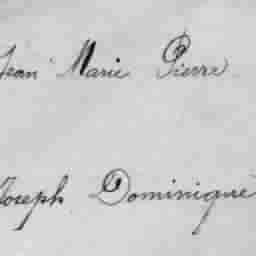 Jean Marie Pierre
Joseph Dominique